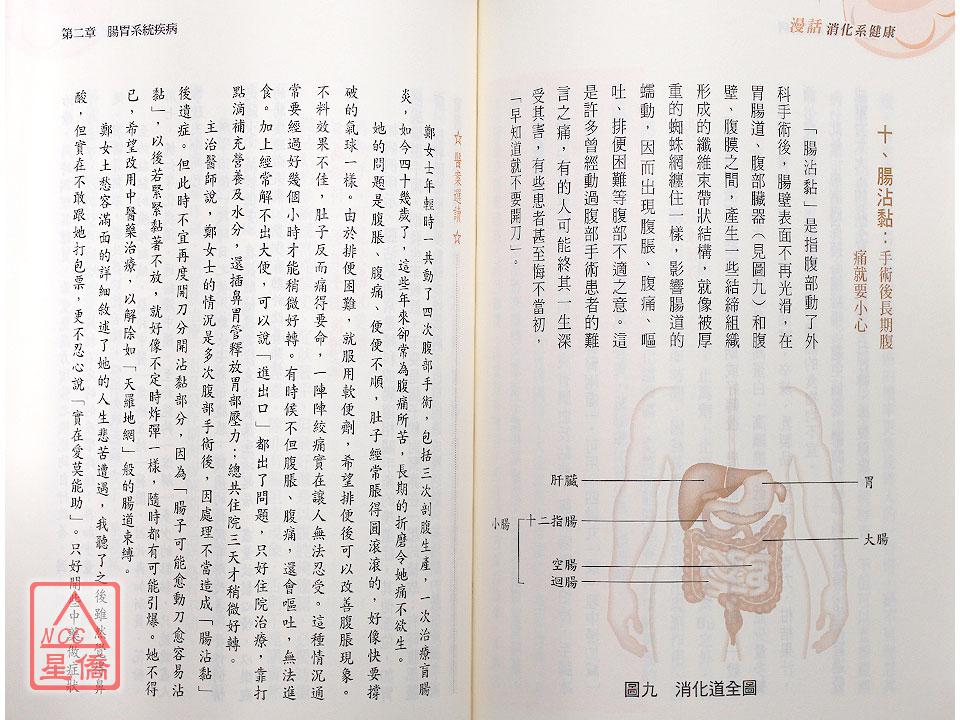 漫話 消化系健康
十、腸沾黏：手術後長期腹
痛就要小心
「腸沾黏」是指腹部動了外
科手術後，腸壁表面不再光滑，在
胃腸道、腹部臟器（見圖九）和腹
壁、腹膜之間，產生一些結締組織
形成的纖維束帶狀結構，就像被厚
重的蜘蛛網纏住一樣，影響腸道的
蠕動，因而出現腹脹、腹痛、嘔
吐、排便困難等腹部不適之意。這
是許多曾經動過腹部手術患者的難
言之痛，有的人可能終其一生深
受其害，有些患者甚至悔不當初，
「早知道就不要開刀」。
肝臟
胃
小腸
十二指腸
大腸
空腸
迴腸
圖九　消化道全圖
第二章　腸胃系統疾病
☆ 醫案選讀 ☆
鄭女士年輕時一共動了四次腹部手術，包括三次剖腹生產，一次治療盲腸
炎，如今四十幾歲了，這些年來卻常為腹痛所苦，長期的折磨令她痛不欲生。
她的問題是腹脹、腹痛、便便不順，肚子經常脹得圓滾滾的，好像快要撐
破的氣球一樣。由於排便困難，就服用軟便劑，希望排便後可以改善腹脹現象。
不料效果不佳，肚子反而痛得要命，一陣陣絞痛實在讓人無法忍受。這種情況通
常要經過好幾個小時才能稍微好轉。有時候不但腹脹、腹痛，還會嘔吐，無法進
食。加上經常解不出大便，可以說「進出口」都出了問題，只好住院治療，靠打
點滴補充營養及水分，還插鼻胃管釋放胃部壓力；總共住院三天才稍微好轉。
主治醫師說，鄭女士的情況是多次腹部手術後，因處理不當造成「腸沾黏」
後遺症。但此時不宜再度開刀分開沾黏部分，因為「腸子可能愈動刀愈容易沾
黏」，以後若緊緊黏著不放，就好像不定時炸彈一樣，隨時都有可能引爆。她不得
已，希望改用中醫藥治療，以解除如「天羅地網」般的腸道束縛。
鄭女士愁容滿面的詳細敘述了她的人生悲苦遭遇，我聽了之後雖然覺得鼻
酸，但實在不敢跟她打包票，更不忍心說「實在愛莫能助」。只好開些中藥做症狀
NCC
星僑